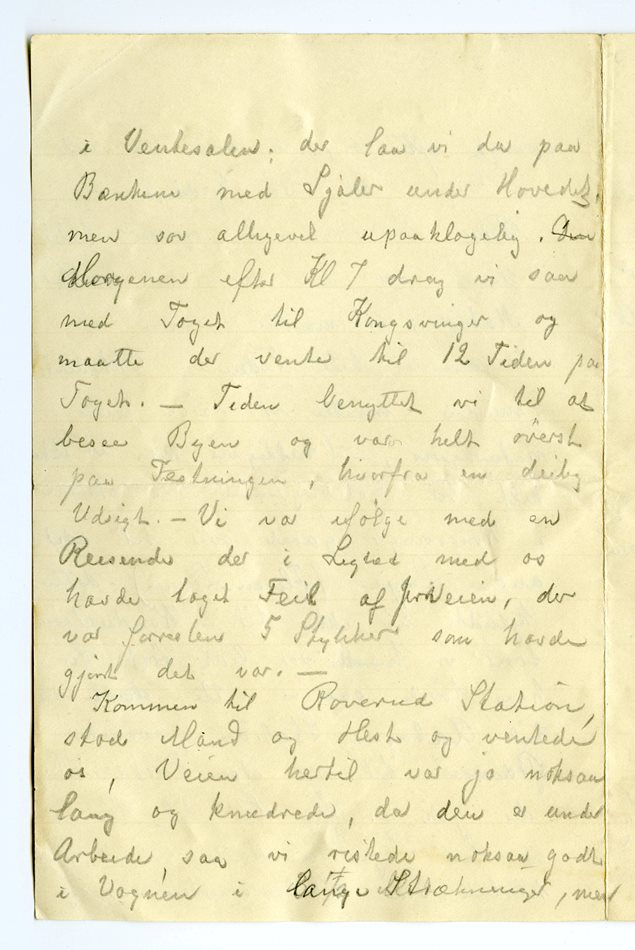 i Ventesalen; der laa vi da paa
Bænkene med Sjaler under Hovedet,
men sov alligevel upaaklagelig. Den
Morgenen efter Kl 7 drog vi saa
med Toget til Kongsvinger og
maatte der vente til 12 Tiden paa
Toget. — Tiden benyttet vi til at
besee Byen og var helt överst
paa Festningen, hvorfra en deilig
Udsigt. — Vi var ifölge med en
Reesende der i Lighed med os
havde taget Feil af Jernveien, der
var forresten 5 Stykker som havde
gjort det var. —
Kommen til Roverud Station,
stod Mand og Hest og ventede
os, Veien hertil var jo noksaa
lang og knudrede, da den er under
Arbeide, saa vi ristede noksaa godt
i Vognen i lange Strækninger, men